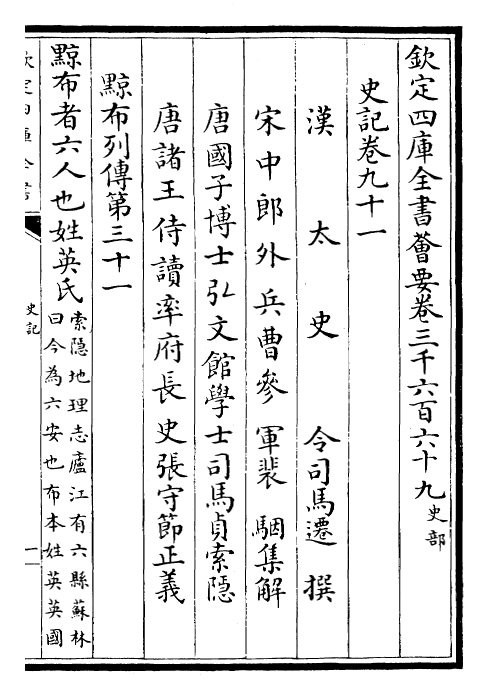 欽定四庫全書薈要卷三千六百六十九史部
史記卷九十一
漢太史令司馬遷撰
宋中郎外兵曹參軍裴駰集解
唐國子博士弘文館學士司馬貞索隱
唐諸王侍讀率府長史張守節正義
黥布列傳第三十一
黥布者六人也姓英氏
索隱地理志廬江有六縣蘇林
曰今為六安也布本姓英英國
史記
一